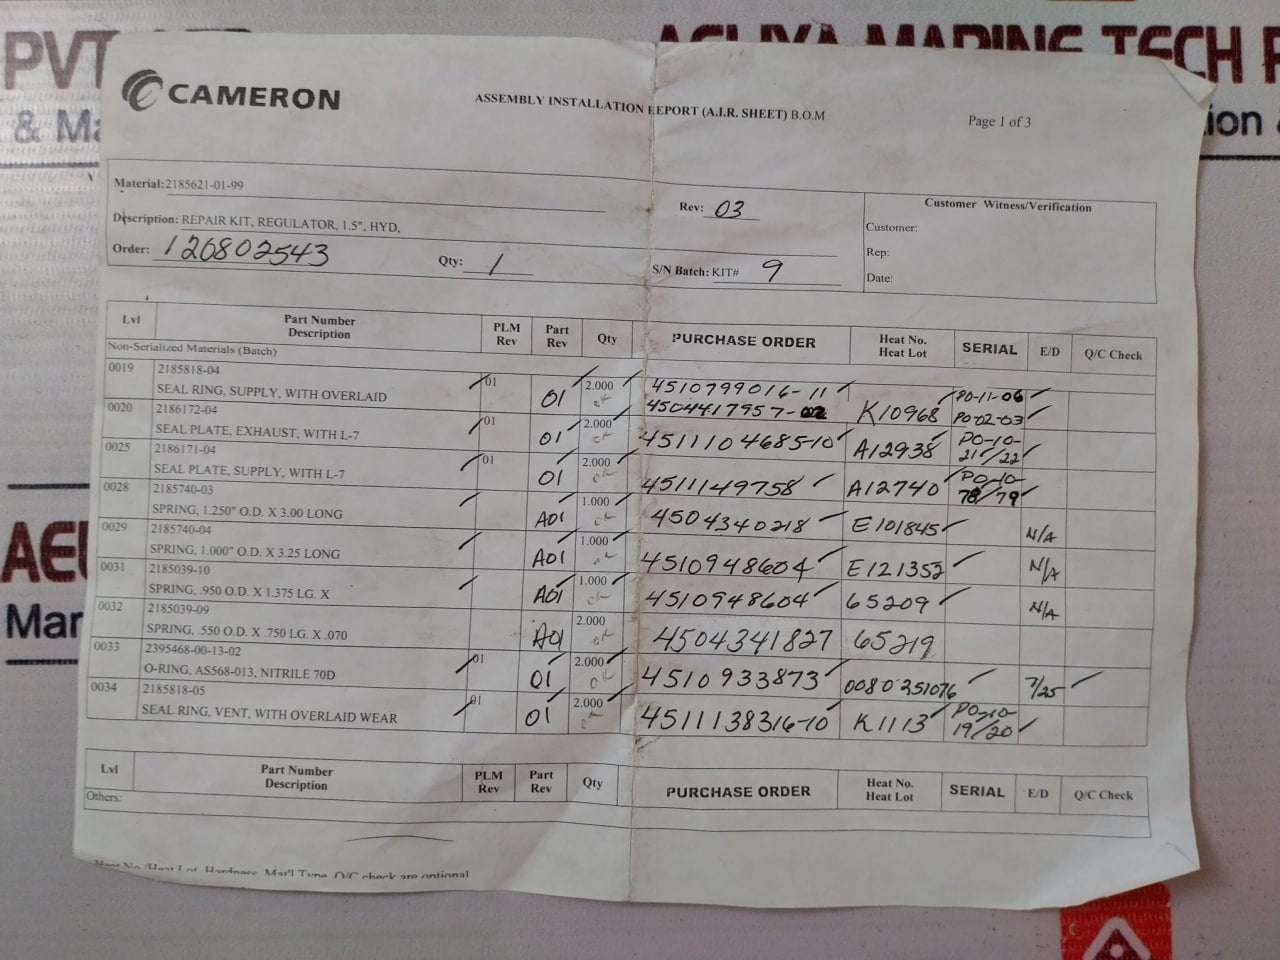 PVT
AEUYA MARINE TECH P
& Ma
ion &
CAMERON
ASSEMBLY INSTALLATION REPORT (A.I.R. SHEET) B.O.M
Page 1 of 3
Material:2185621-01-99
Rev: 03
Customer Witness/Verification
Description: REPAIR KIT, REGULATOR, 1.5", HYD,
Customer:
Order: 120802543
Qty: 1
S/N Batch: KIT# 9
Rep:
Date:
Lvl Part Number Description PLM Rev Part Rev Qty PURCHASE ORDER Heat No. Heat Lot SERIAL E/D Q/C Check
Non-Serialized Materials (Batch)
0019 2185818-04 01 2.000 4510799016-11 PO-11-06
SEAL RING, SUPPLY, WITH OVERLAID 01 ok 4504417957-02 K10968 PO02-03
0020 2186172-04 01 2.000
SEAL PLATE, EXHAUST, WITH L-7 01 ok 4511104685-10 A12938 PO-10-21/22
0025 2186171-04 01 2.000
SEAL PLATE, SUPPLY, WITH L-7 01 ok 4511149758 A12740 PO-10-78/79
0028 2185740-03 1.000
SPRING, 1.250" O.D. X 3.00 LONG A01 ok 4504340218 E101845 N/A
0029 2185740-04 1.000
SPRING, 1.000" O.D. X 3.25 LONG A01 ok 4510948604 E121352 N/A
0031 2185039-10 1.000
SPRING, .950 O.D. X 1.375 LG. X A01 ok 4510948604 65209 N/A
0032 2185039-09 2.000
SPRING, .550 O.D. X .750 LG. X .070 A01 ok 4504341827 65219
0033 2395468-00-13-02 01 2.000
O-RING, AS568-013, NITRILE 70D 01 ok 4510933873 0080251076 7/25
0034 2185818-05 01 2.000
SEAL RING, VENT, WITH OVERLAID WEAR 01 ok 4511138316-10 K1113 PO-10-19/20
Lvl Part Number Description PLM Rev Part Rev Qty PURCHASE ORDER Heat No. Heat Lot SERIAL E/D Q/C Check
Others:
Heat No./Heat Lot, Hardness, Mat'l Type, Q/C check are optional
AEU
Mar